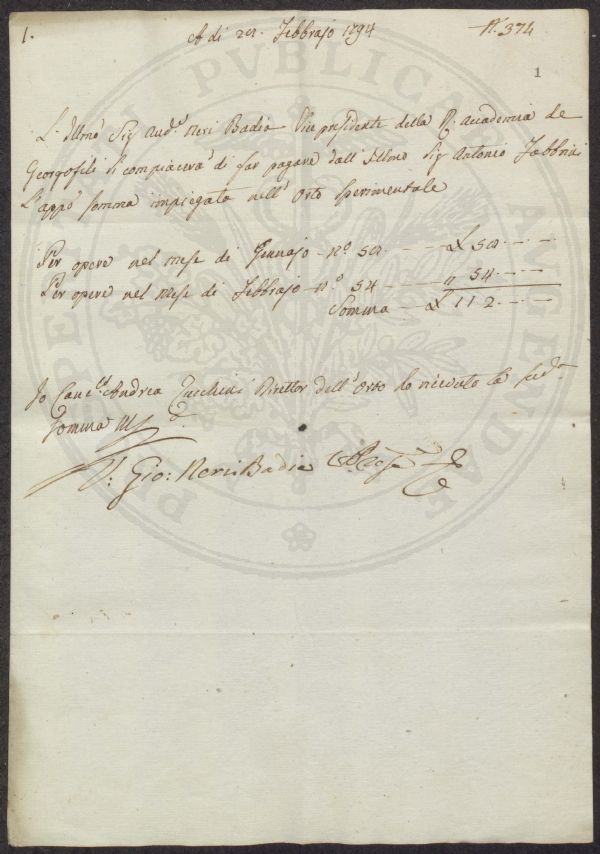 1.
A di 28. Febbrajo 1794
N. 374
1
L'Illmo Sig Aud.e Neri Badia Vice presidente della R. Accademia de
Georgofili si compiacerà di far pagare dall'Illmo Sig Antonio Fabbrini
L'appo somma impiegata nell'Orto Sperimentale
Per opere nel mese di Gennajo - n.o 58. - - - - £ 58. - - -
Per opere nel Mese di Febbrajo - n.o 54 - - - - " 54. - - -
Somma - £ 112 - - -
Io Can.co Andrea Zucchini Direttor dell'Orto ho ricevuto la sud.a
Somma
V. Gio: Neri Badia
PROSPERITATI PUBLICAE AUGENDAE